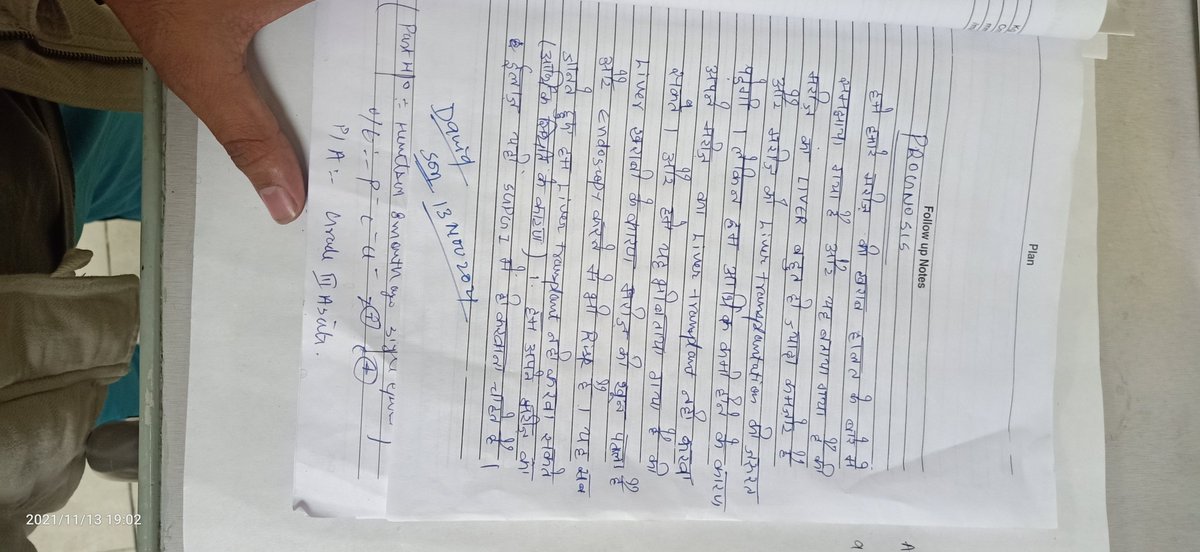 Plan
Follow up Notes
PROGNOSIS
हमें हमारे मरीज की खराब हालत के बारे में
समझाया गया है और यह बताया गया है की
मरीज का LIVER बहुत ही ज्यादा कमजोर है
और मरीज को Liver transplantation की जरूरत
पड़ेगी। लेकिन हम आर्थिक कमी होने के कारण
अपने मरीज का Liver transplant नहीं करवा
सकते। और हमें यह भी बताया गया है की
Liver खराबी के कारण मरीज को खून पतला है
और Endoscopy करने में भी Risk है। यह सब
जानते हुए हम Liver transplant नहीं करवा सकते
(आर्थिक स्थिति के कारण)। हम अपने मरीज का
ईलाज यही SGPGI में ही करवाना चाहते है।
David
Son 13 Nov 2021
Past H/O
8 month ago
P/A:- Grade III Ascites.
2021/11/13 19:02